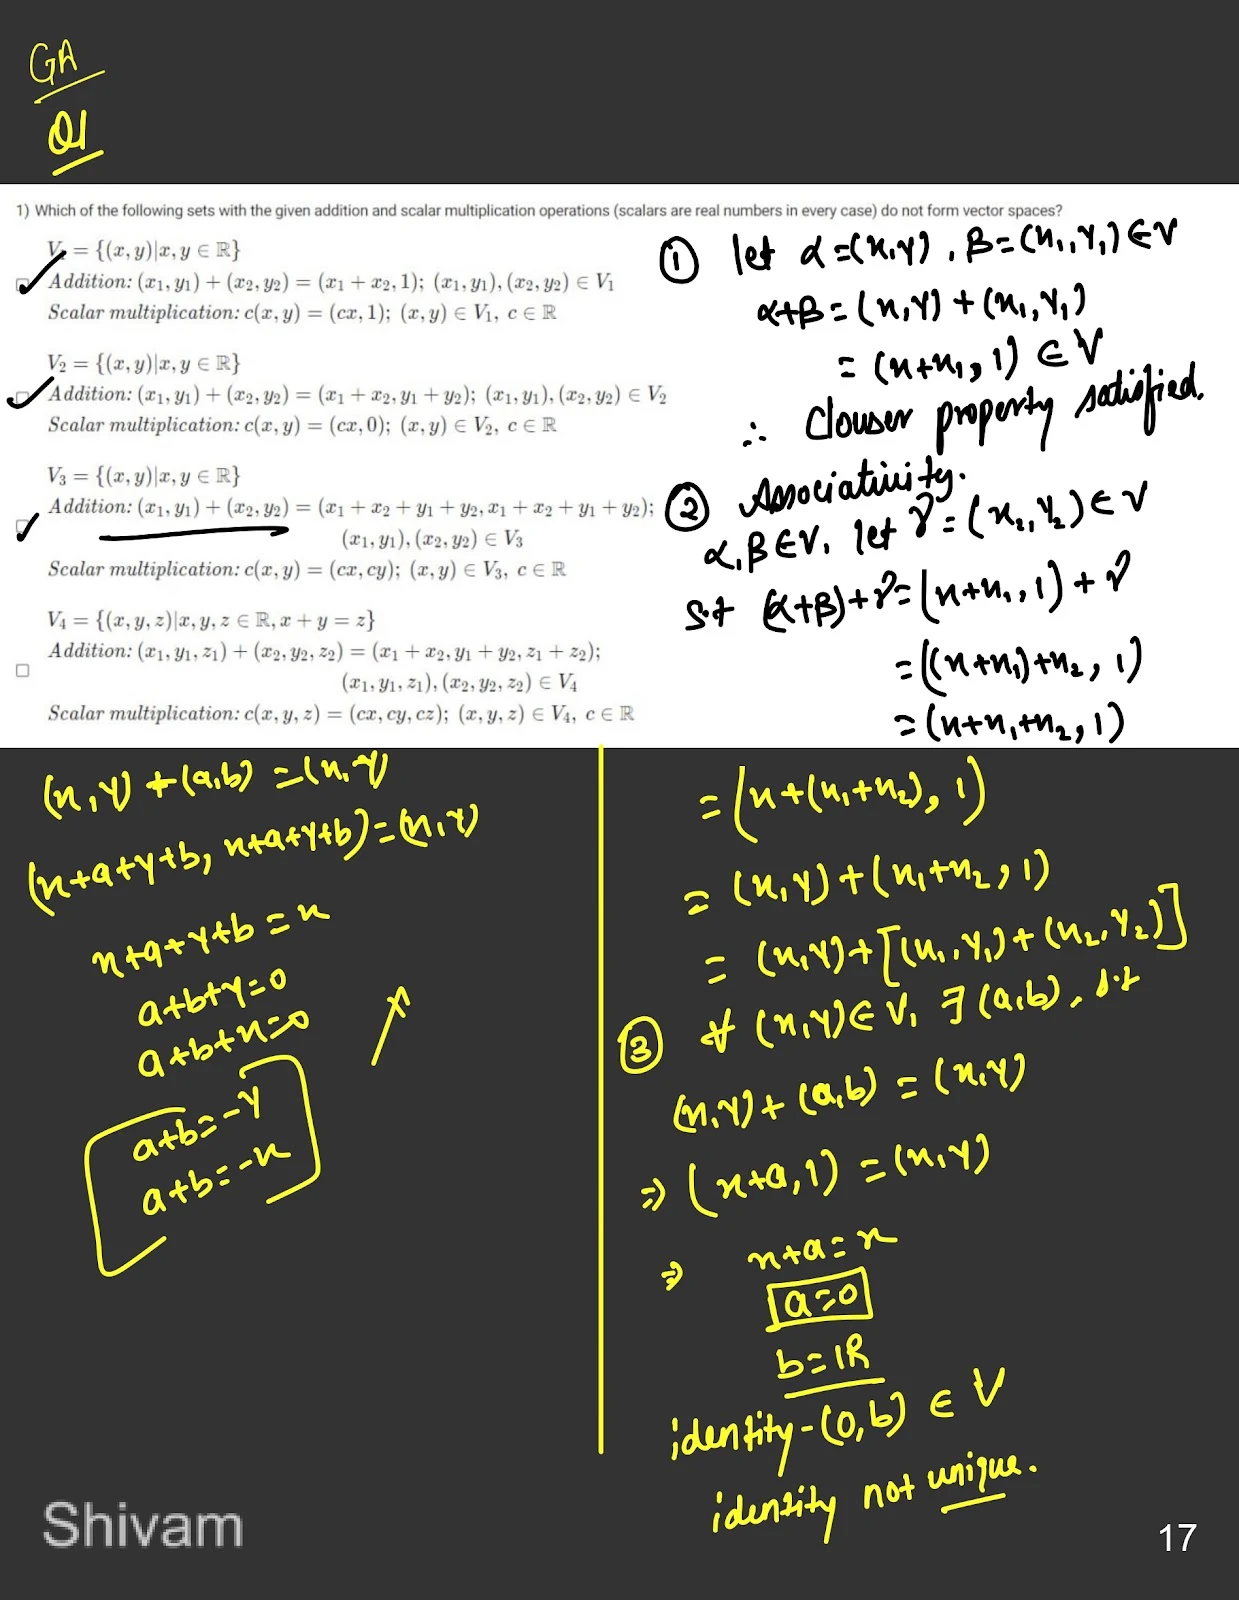 GA
Q1
1) Which of the following sets with the given addition and scalar multiplication operations (scalars are real numbers in every case) do not form vector spaces?
V₁ = {(x, y)|x, y ∈ ℝ}
Addition: (x₁, y₁) + (x₂, y₂) = (x₁ + x₂, 1); (x₁, y₁), (x₂, y₂) ∈ V₁
Scalar multiplication: c(x, y) = (cx, 1); (x, y) ∈ V₁, c ∈ ℝ
V₂ = {(x, y)|x, y ∈ ℝ}
Addition: (x₁, y₁) + (x₂, y₂) = (x₁ + x₂, y₁ + y₂); (x₁, y₁), (x₂, y₂) ∈ V₂
Scalar multiplication: c(x, y) = (cx, 0); (x, y) ∈ V₂, c ∈ ℝ
V₃ = {(x, y)|x, y ∈ ℝ}
Addition: (x₁, y₁) + (x₂, y₂) = (x₁ + x₂ + y₁ + y₂, x₁ + x₂ + y₁ + y₂);
(x₁, y₁), (x₂, y₂) ∈ V₃
Scalar multiplication: c(x, y) = (cx, cy); (x, y) ∈ V₃, c ∈ ℝ
V₄ = {(x, y, z)|x, y, z ∈ ℝ, x + y = z}
Addition: (x₁, y₁, z₁) + (x₂, y₂, z₂) = (x₁ + x₂, y₁ + y₂, z₁ + z₂);
(x₁, y₁, z₁), (x₂, y₂, z₂) ∈ V₄
Scalar multiplication: c(x, y, z) = (cx, cy, cz); (x, y, z) ∈ V₄, c ∈ ℝ
① let α = (x, y), β = (x₁, y₁) ∈ V
α+β = (x, y) + (x₁, y₁)
= (x+x₁, 1) ∈ V
∴ Clouser property satisfied.
② Associativity.
α, β ∈ V, let γ = (x₂, y₂) ∈ V
s.t (α+β)+γ = (x+x₁, 1) + γ
= ((x+x₁)+x₂, 1)
= (x+x₁+x₂, 1)
= (x+(x₁+x₂), 1)
= (x, y) + (x₁+x₂, 1)
= (x, y) + [(x₁, y₁) + (x₂, y₂)]
③ ∀ (x, y) ∈ V, ∃ (a, b), s.t
(x, y) + (a, b) = (x, y)
⇒ (x+a, 1) = (x, y)
⇒ x+a = x
a=0
b=ℝ
identity - (0, b) ∈ V
identity not unique.
(x, y) + (a, b) = (x, y)
(x+a+y+b, x+a+y+b) = (x, y)
x+a+y+b = x
a+b+y=0
a+b+x=0
a+b=-y
a+b=-x
Shivam
17